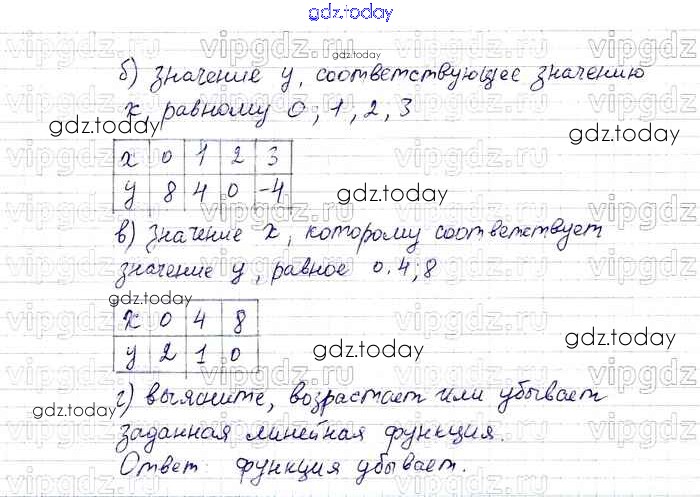 gdz.today
vipgdz.ru
gdz.today
б) значение y, соответствующее значению
x, равному 0, 1, 2, 3
gdz.today
gdz.today
x 0 1 2 3
y 8 4 0 -4
gdz.today
в) значение x, которому соответствует
значение y, равное 0, 4, 8
gdz.today
x 0 4 8
y 2 1 0
gdz.today
gdz.today
г) выясните, возрастает или убывает
gdz.today
заданная линейная функция.
Ответ: функция убывает.